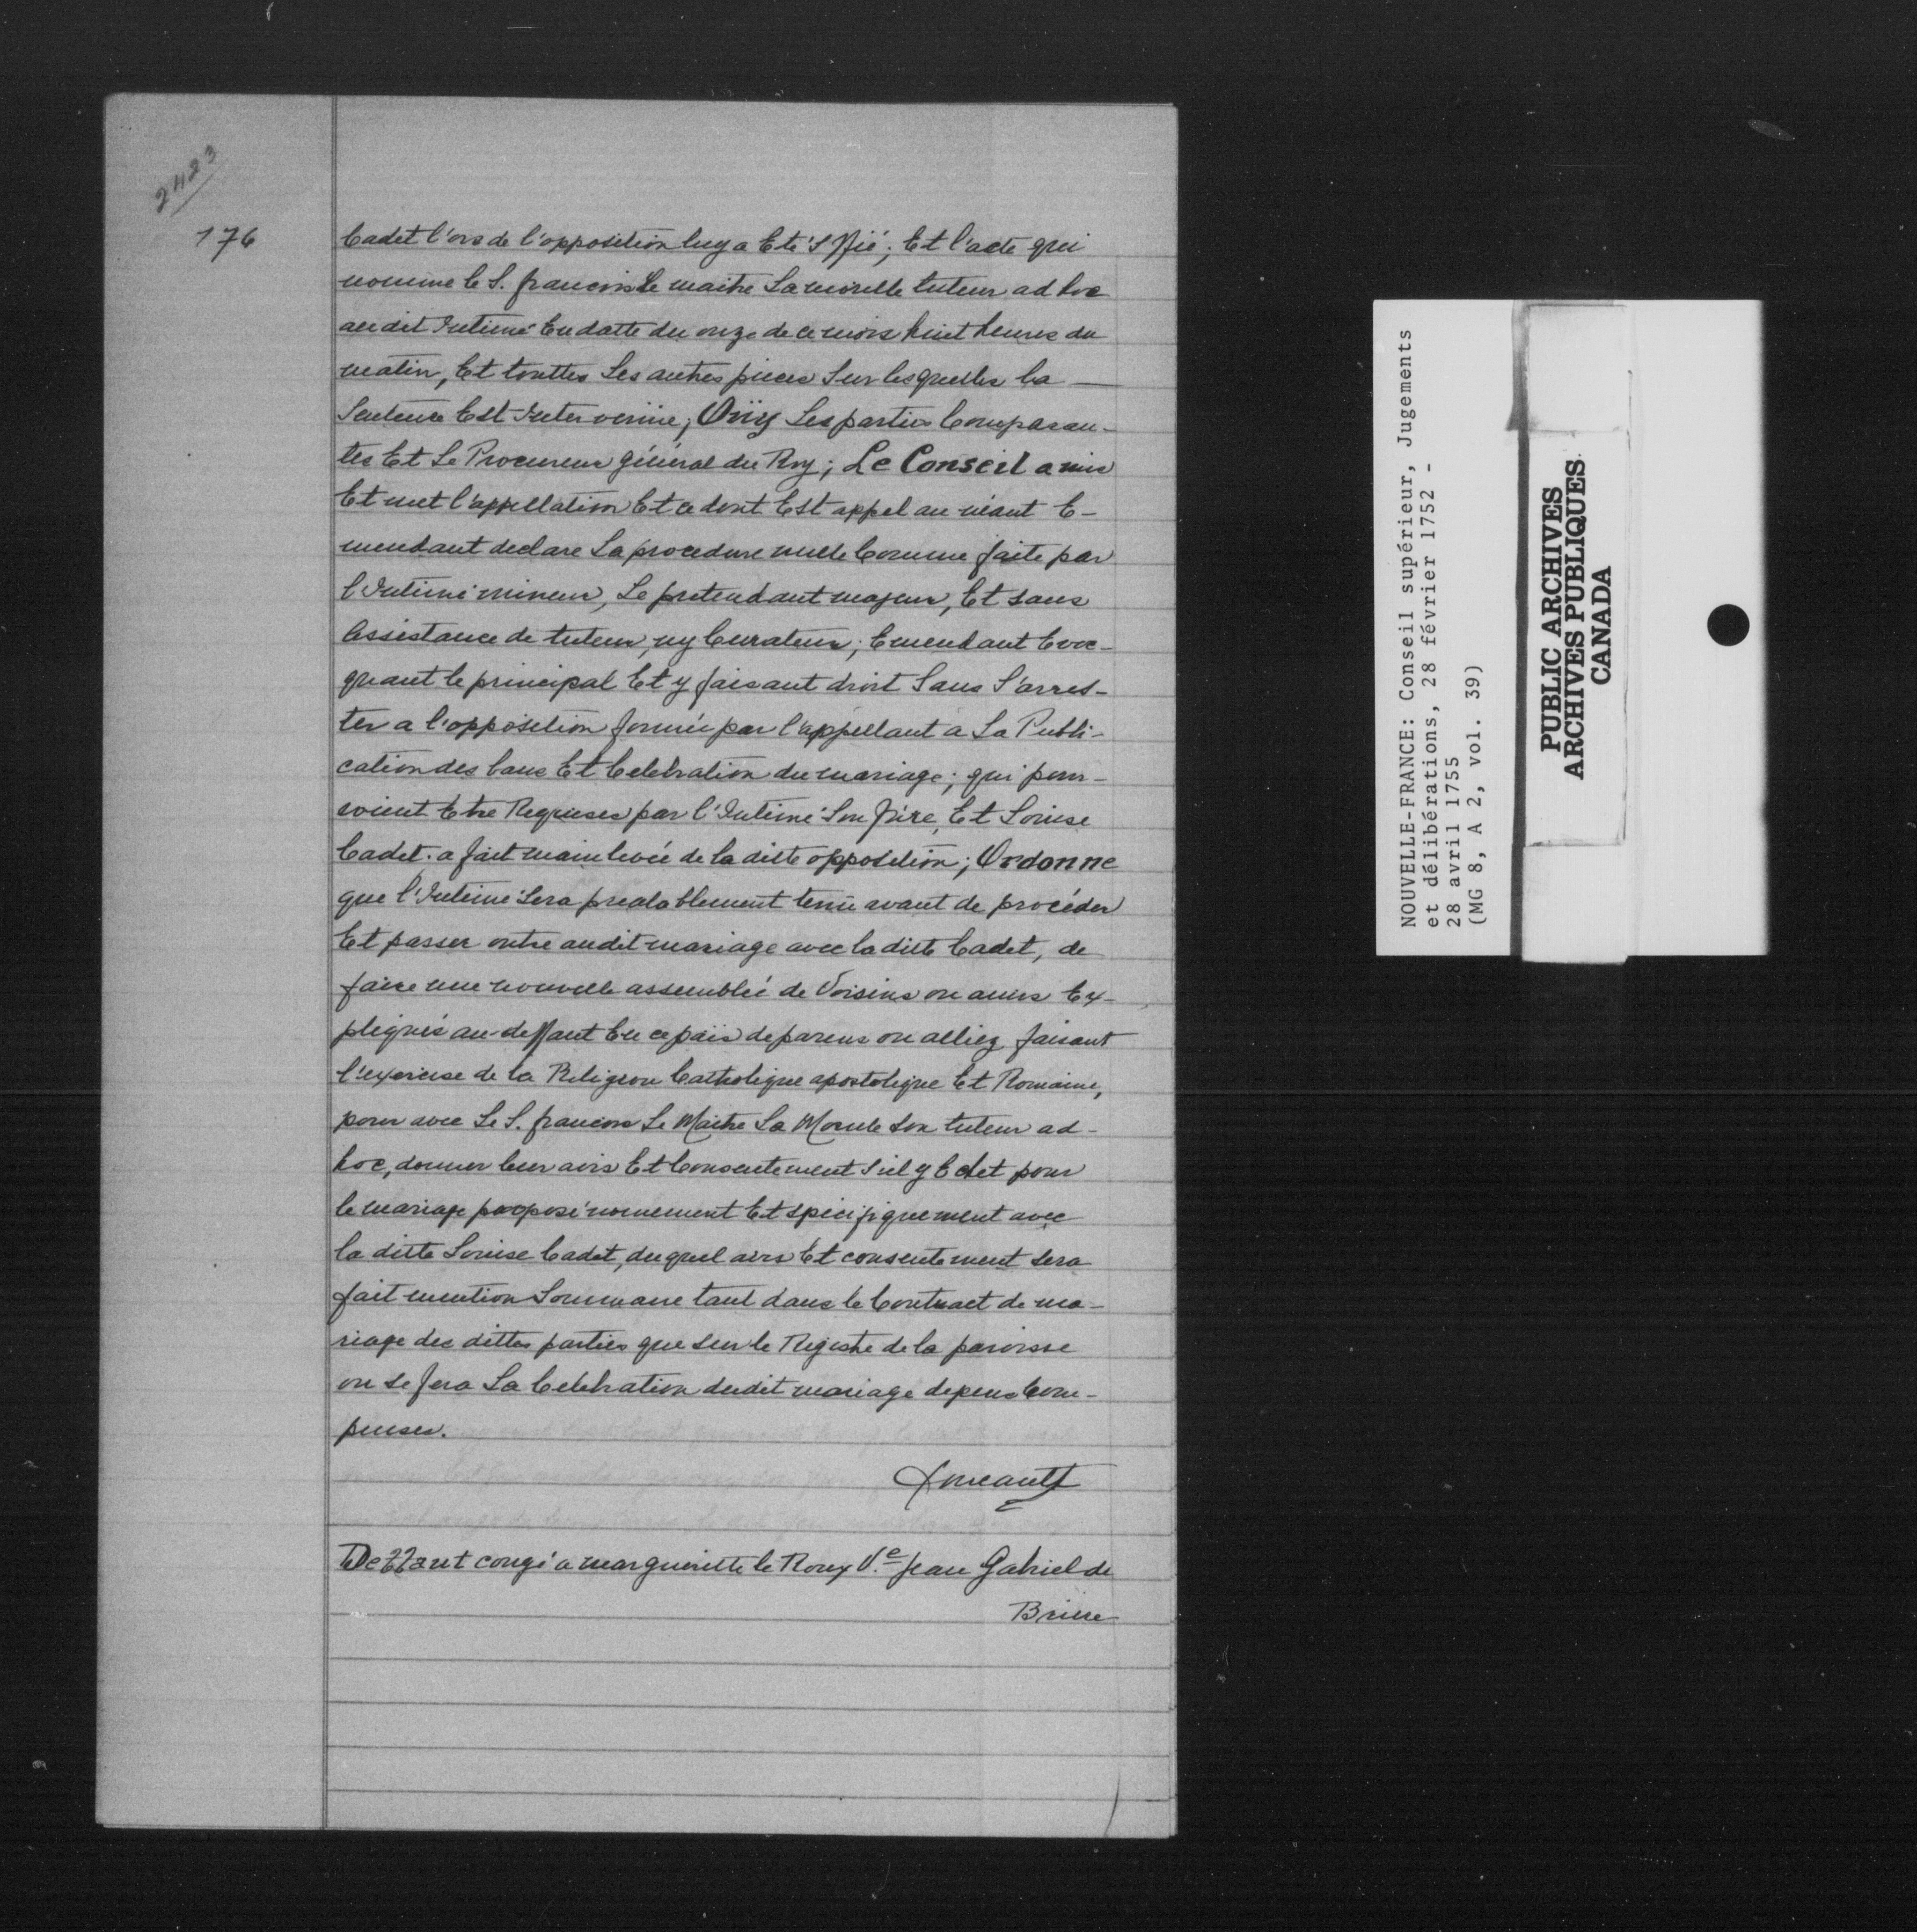 2423
176
Cadet l'ors de l'opposition luy a Eté S Ffié; Et l'acte qui
nomme le S. francois le maitre Lamorille tuteur ad hoc
audit Intimé En datte du onze de ce mois huit heures du
matin, Et touttes Les autres pieces Sur lesquelles la —
Sentence Est Intervenüe; Oüy Les parties Comparan-
tes Et Le Procureur général du Roy; Le Conseil a mis
Et met l'appellation Et ce dont Est appel au néant E-
mendant declare La procedure nulle Comme faite par
l'Intimé mineur, Se pretendant majeur, Et sans
assistance de tuteur, ny Curateur; Emendant Evoc-
quant le principal Et y faisant droit Sans S'arres-
ter a l'opposition formée par l'appellant a La Publi-
cation des bans Et Celebration du mariage; qui pour-
roient Etre Requises par l'Intimé Son frère, Et Louise
Cadet. a fait main levée de la ditte opposition; Ordonne
que l'Intimé Sera prealablement tenü avant de procéder
Et passer outre audit mariage avec la ditte Cadet, de
faire une nouvelle assemblée de Voisins ou amis Ex-
pliqués au-deffaut En ce païs de parens ou alliez faisant
l'exercise de la Religion Catholique apostolique Et Romaine,
pour avec Le S. francois Le Maitre La Morille son tuteur ad-
hoc, donner leur avis Et Consentement S'il y Echet pour
le mariage proposé nomement Et spécifiquement avec
la ditte Louise Cadet, duquel avis Et consentement sera
fait mention Sommaire tant dans le Contract de ma-
riage des dittes parties que sur le Registre de la paroisse
ou se fera La Celebration dudit mariage depens Com-
pensez.
Deffaut congé a margueritte le Roux V.e Jean Gabriel de
Briere
NOUVELLE-FRANCE: Conseil supérieur, Jugements
et délibérations, 28 février 1752 -
28 avril 1755
(MG 8, A 2, vol. 39)
PUBLIC ARCHIVES
ARCHIVES PUBLIQUES
CANADA